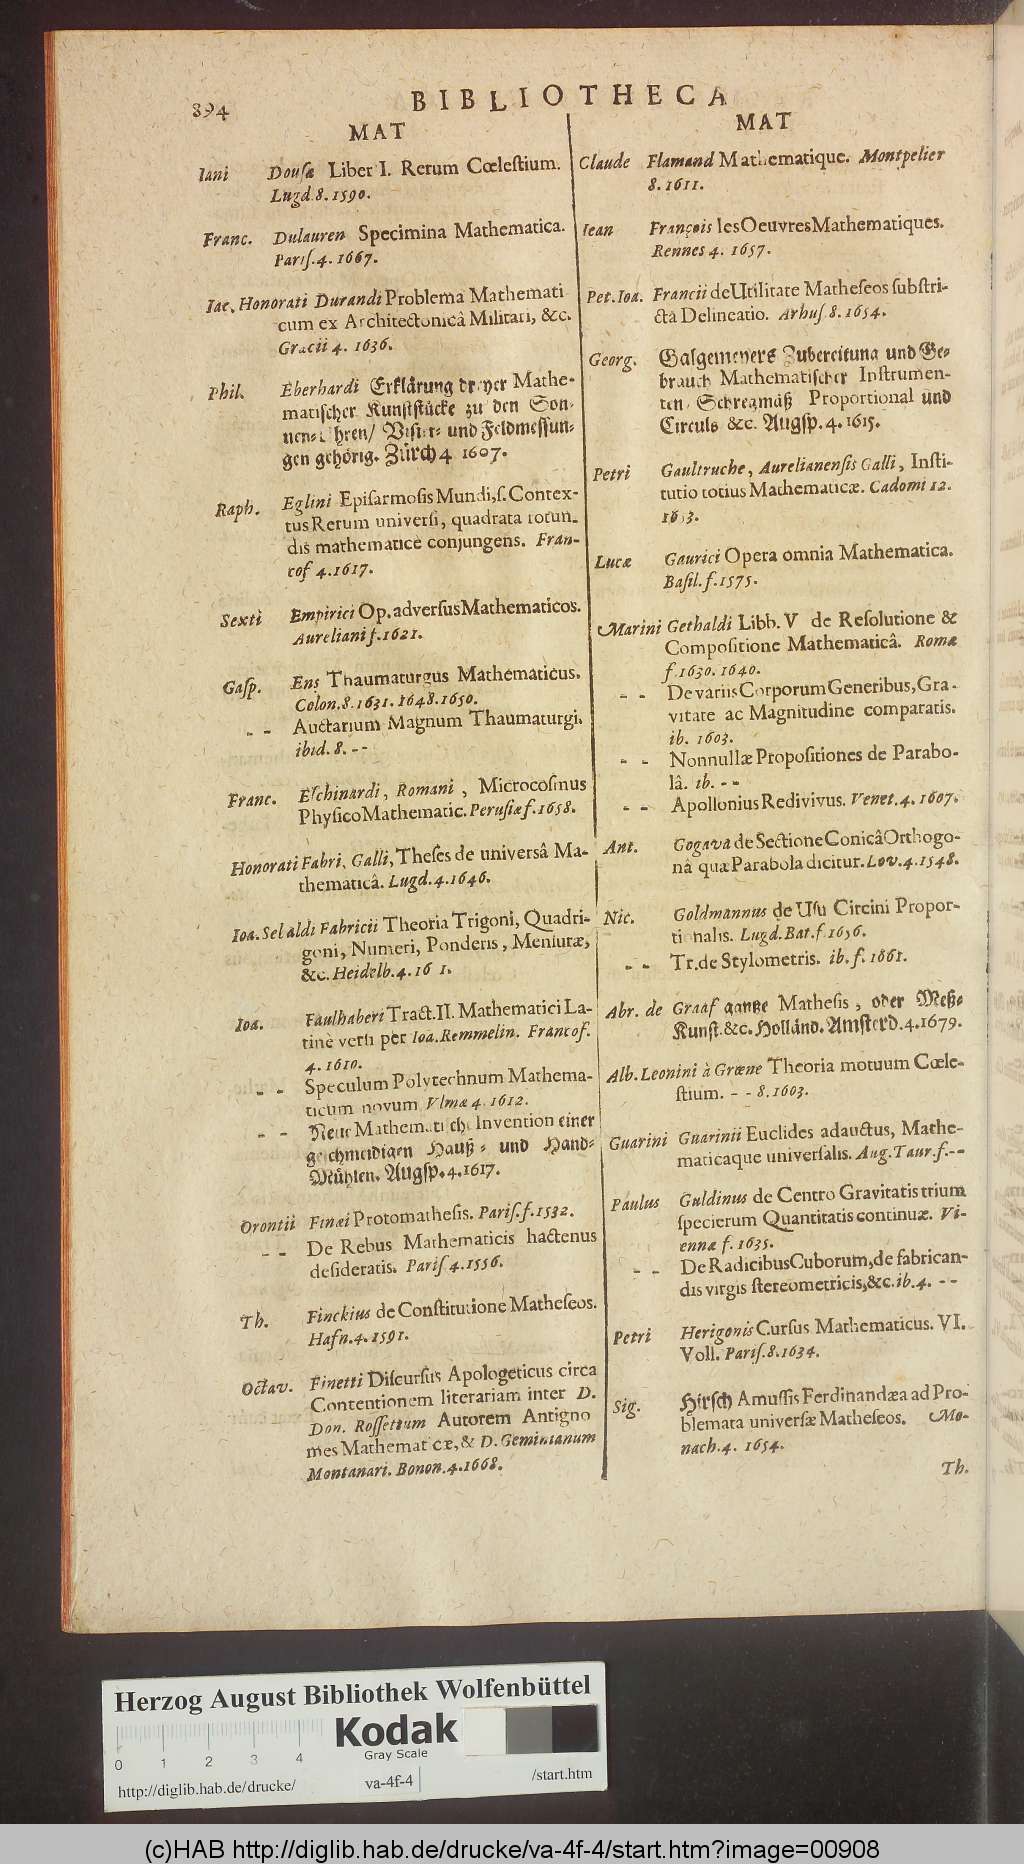 894
BIBLIOTHECA
MAT
Iani Dousæ Liber I. Rerum Cœleſtium.
Lugd. 8. 1590.
Franc. Dulauren Specimina Mathematica.
Pariſ. 4. 1667.
Iac. Honorati Durandi Problema Mathemati
cum ex Architectonicâ Militari, &c.
Gracii 4. 1636.
Phil. Eberhardi Erklärung dreyer Mathe-
matiſcher Kunſtſtücke zu den Son-
nen-Uhren/ Viſier- und Feldmeſſun-
gen gehörig. Zürch 4 1607.
Raph. Eglini Epiſarmoſis Mundi, ſ. Contex-
tus Rerum univerſi, quadrata rotun-
dis mathematice conjungens. Fran-
cof 4. 1617.
Sexti Empirici Op. adverſus Mathematicos.
Aureliani f. 1621.
Gaſp. Ens Thaumaturgus Mathematicus.
Colon. 8. 1631. 1648. 1650.
- - Auctarium Magnum Thaumaturgi.
ibid. 8. - -
Franc. Eſchinardi, Romani, Microcoſmus
PhyſicoMathematic. Peruſiæ f. 1658.
Honorati Fabri, Galli, Theſes de universâ Ma-
thematicâ. Lugd. 4. 1646.
Ioa. Fabricii Theoria Trigoni, Quadri-
goni, Numeri, Ponderis, Menſuræ,
&c. Heidelb. 4. 16 1.
Ioa. Faulhaberi Tract. II. Mathematici La-
tine verſi per Ioa. Remmelin. Francof.
4. 1610.
- - Speculum Polytechnum Mathema-
ticum novum Vlmæ 4. 1612.
- - Neue Mathematiſche Invention einer
geſchmeidigen Hauß- und Hand-
Mühlen. Augſp. 4. 1617.
Orontii Finæi Protomatheſis. Pariſ. f. 1532.
- - De Rebus Mathematicis hactenus
deſideratis. Pariſ 4. 1556.
Th. Finckius de Conſtitutione Matheſeos.
Hafn. 4. 1591.
Octav. Finetti Diſcurſus Apologeticus circa
Contentionem literariam inter D.
Don. Roſſettum Autorem Antigno
mes Mathematicæ, & D. Geminianum
Montanari. Bonon. 4. 1668.
MAT
Claude Flamand Mathematique. Montpelier
8. 1611.
Iean François les Oeuvres Mathematiques.
Rennes 4. 1657.
Pet. Ioa. Francii de Utilitate Matheſeos ſubſtri-
cta Delineatio. Arhuſ. 8. 1654.
Georg. Galgemeyers Zubereitung und Ge-
brauch Mathematiſcher Inſtrumen-
ten, Schregmäß Proportional und
Circuls &c. Augſp. 4. 1615.
Petri Gaultruche, Aurelianenſis Galli, Inſti-
tutio totius Mathematicæ. Cadomi 12.
Lucæ Gaurici Opera omnia Mathematica.
Baſil. f. 1575.
Marini Gethaldi Libb. V de Reſolutione &
Compoſitione Mathematicâ. Romæ
f. 1630. 1640.
- - De variis Corporum Generibus, Gra-
vitate ac Magnitudine comparatis.
ib. 1603.
- - Nonnullæ Propoſitiones de Parabo-
lâ. ib. - -
- - Apollonius Redivivus. Venet. 4. 1607.
Ant. Gogava de Sectione Conicâ Orthogo-
nâ quæ Parabola dicitur. Lov. 4. 1548.
Nic. Goldmannus de Uſu Circini Propor-
tionalis. Lugd. Bat. f 1656.
- - Tr. de Stylometris. ib. f. 1861.
Abr. de Graaf gantze Matheſis, oder Meß-
Kunſt. &c. Holländ. Amſterd. 4. 1679.
Alb. Leonini à Grœne Theoria motuum Cœle-
ſtium. - - 8. 1603.
Guarini Guarinii Euclides adauctus, Mathe-
maticaque univerſalis. Aug. Taur. f. - -
Paulus Guldinus de Centro Gravitatis trium
ſpecierum Quantitatis continuæ. Vi-
ennæ f. 1635.
- - De Radicibus Cuborum, de fabrican-
dis virgis ſtereometricis, &c. ib. 4. - -
Petri Herigonis Curſus Mathematicus. VI.
Voll. Pariſ. 8. 1634.
Sig. Hirſch Amuſſis Ferdinandæa ad Pro-
blemata univerſæ Matheſeos. Mo-
nach. 4. 1654.
Th.
Herzog August Bibliothek Wolfenbüttel
Kodak
Gray Scale
0 1 2 3 4
http://diglib.hab.de/drucke/ va-4f-4 /start.htm
(c)HAB http://diglib.hab.de/drucke/va-4f-4/start.htm?image=00908